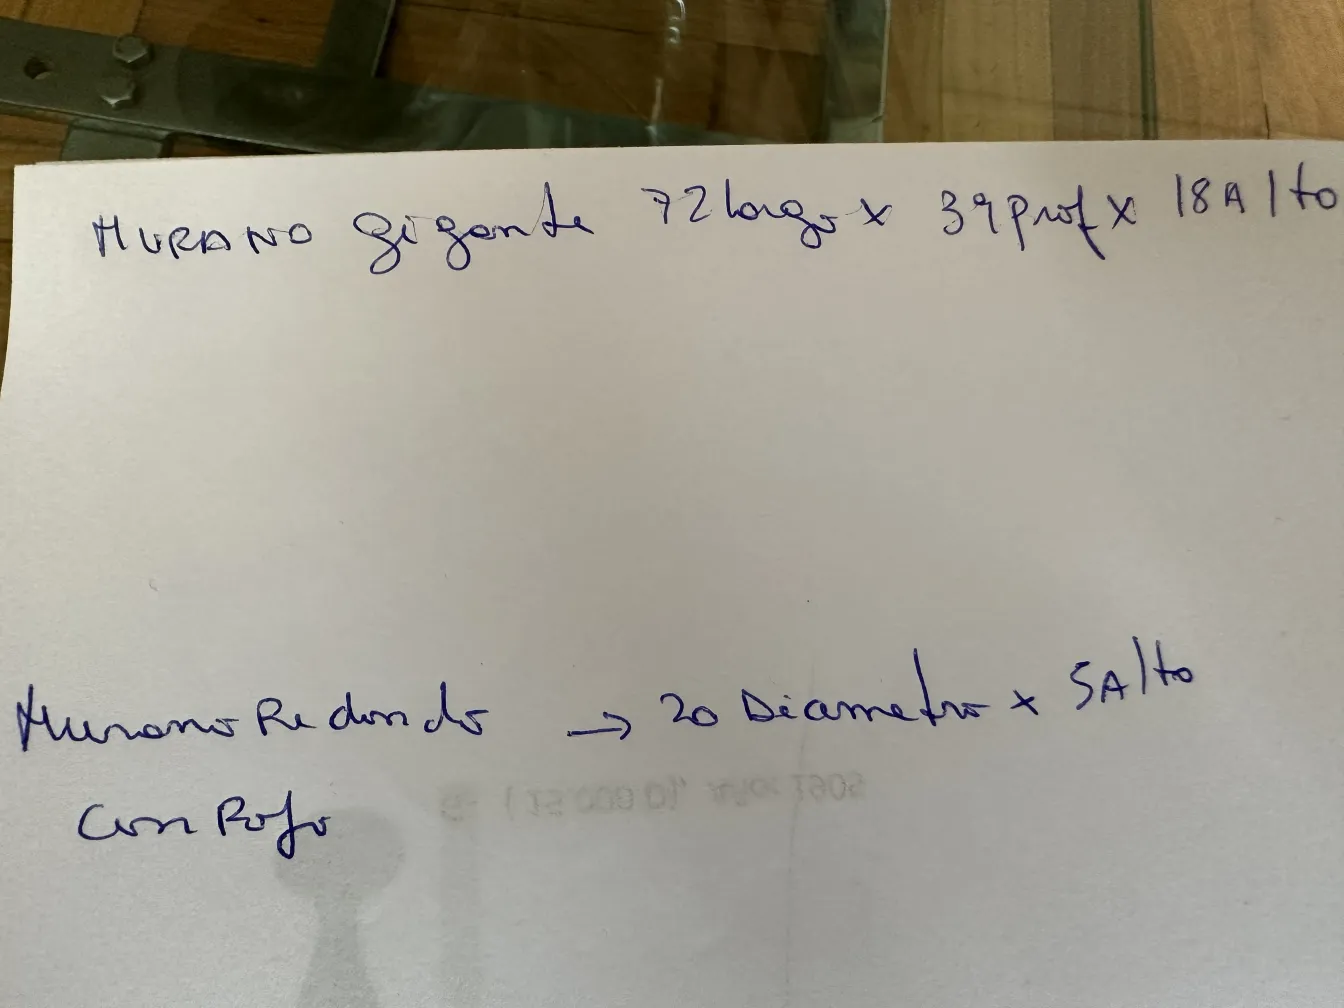 MURANO gigante 72 largo x 39 prof x 18 Alto
Murano Redondo → 20 Diametro x 5 Alto
Con Rojo